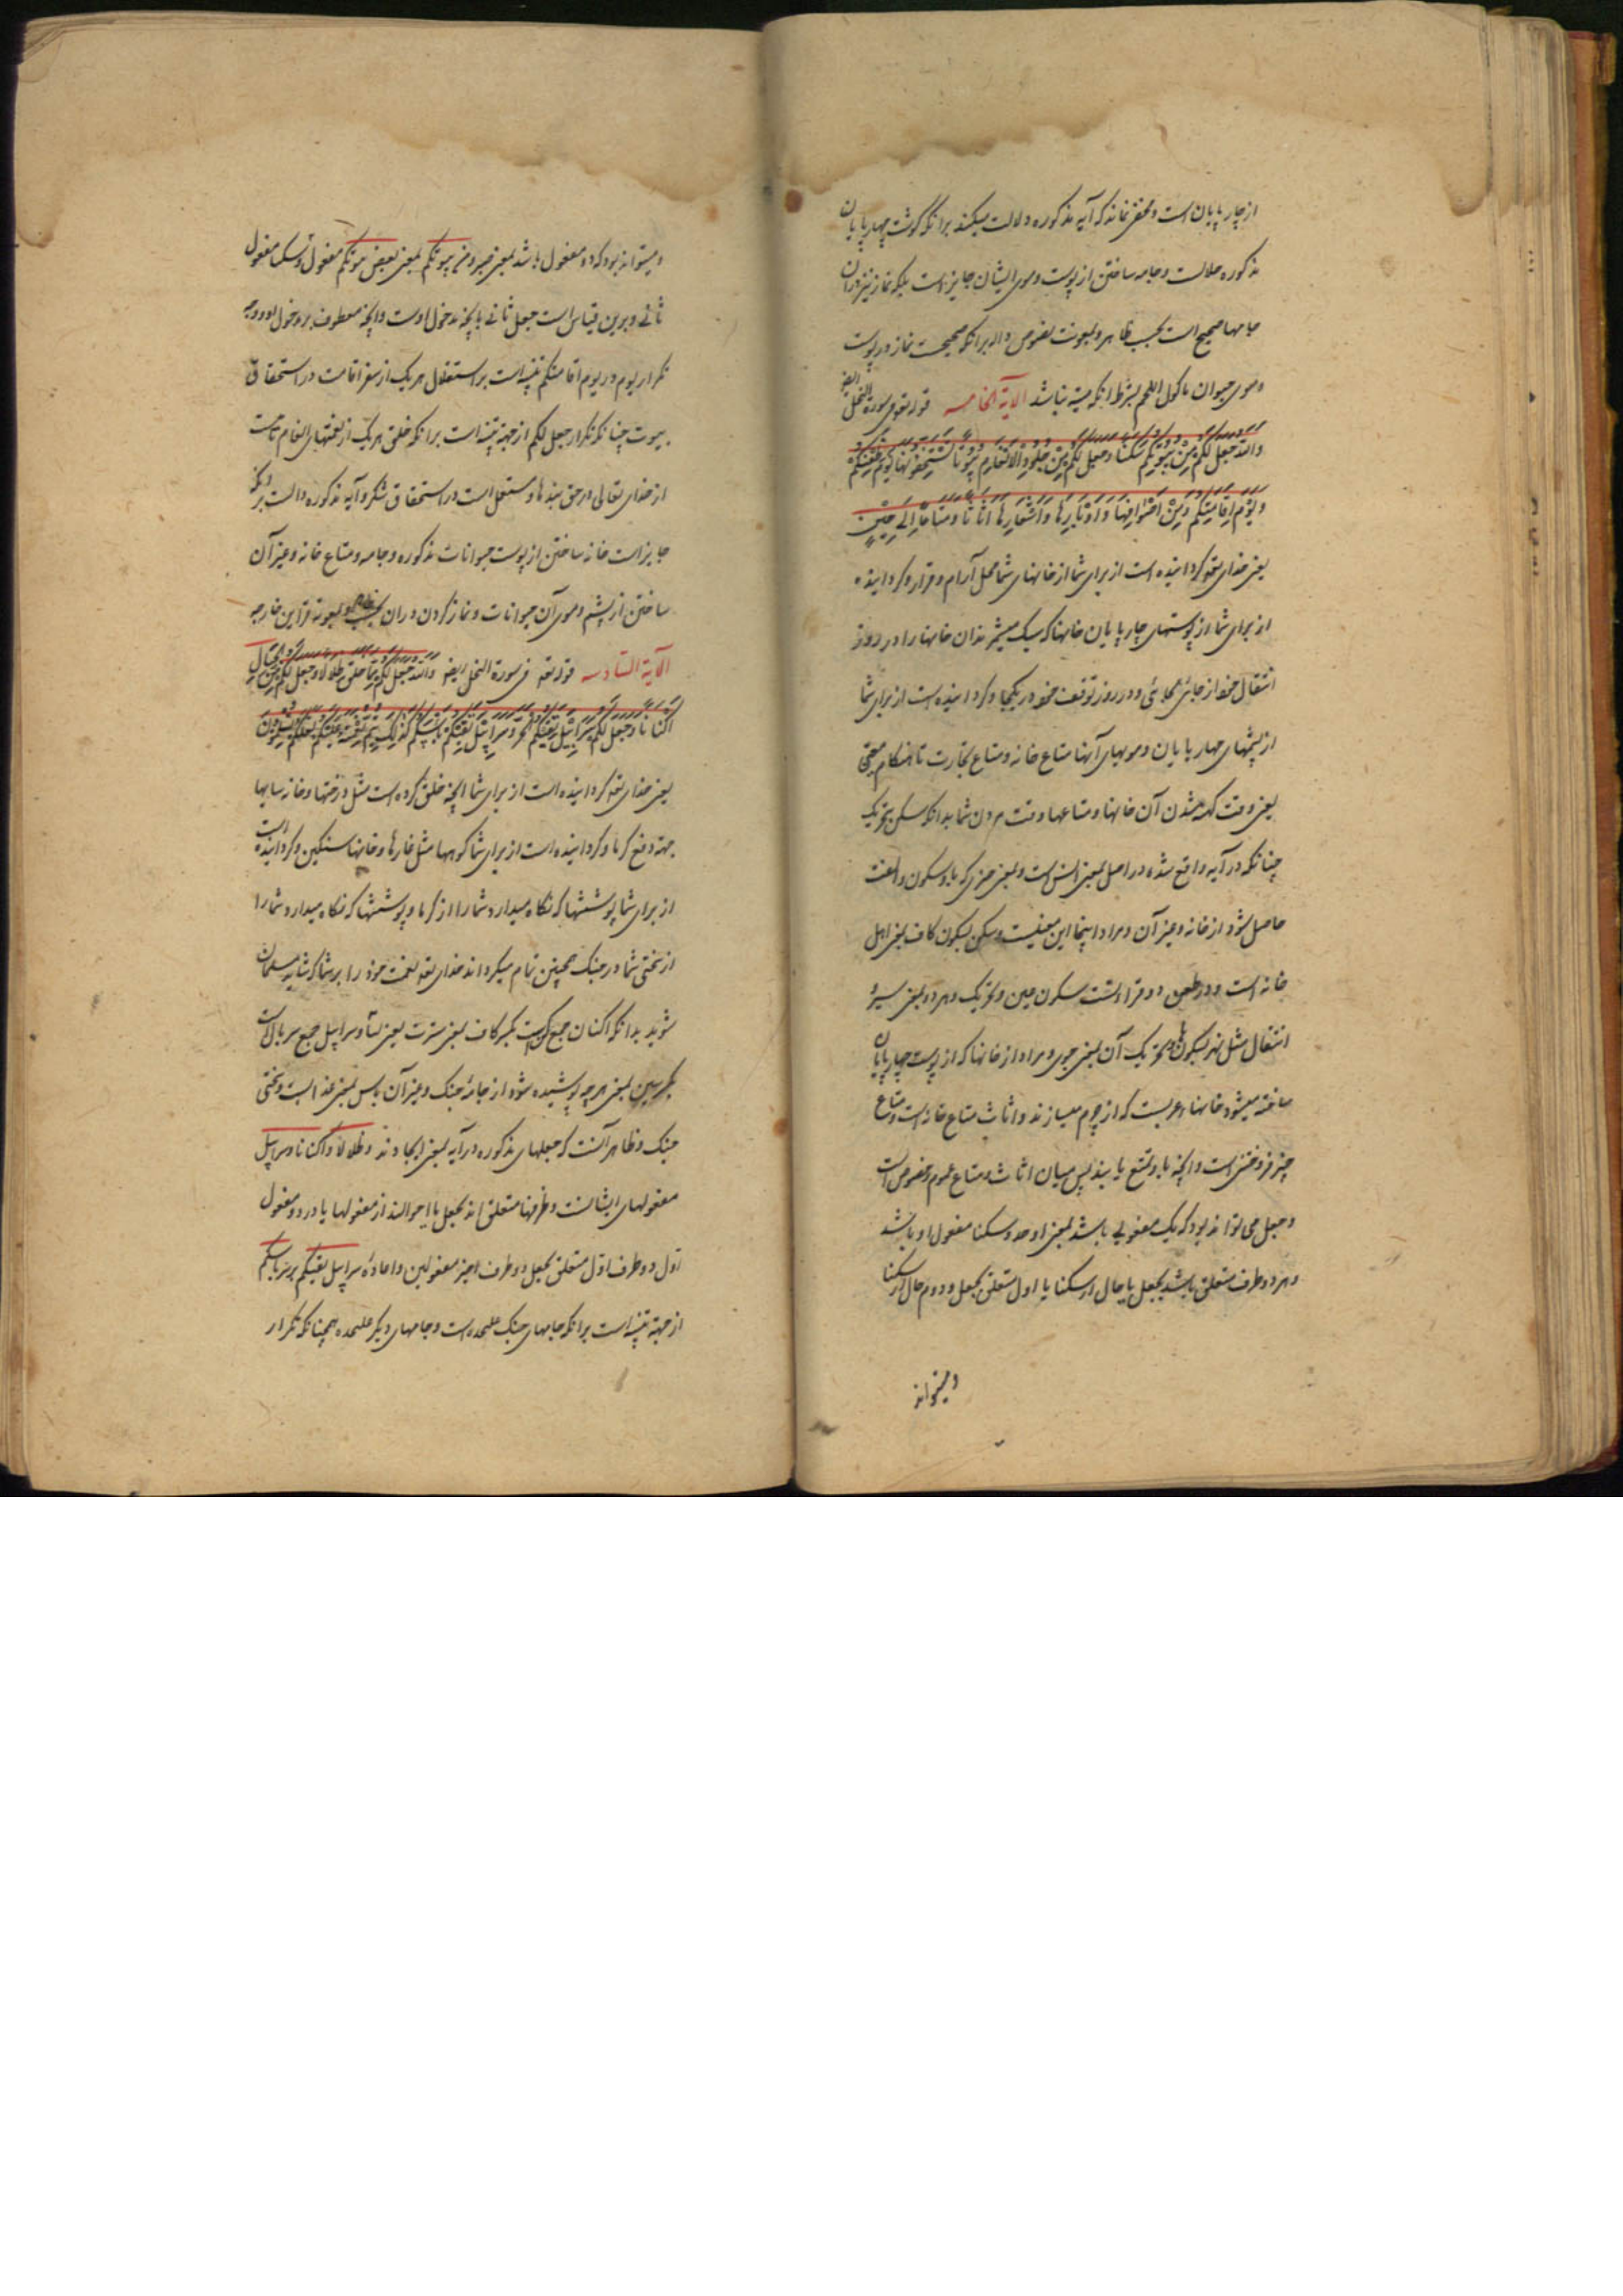 از چارپایان است و مخفی نماند که آیه مذکوره دلالت میکند برانکه گوشت چهارپایان
مذکوره حلالست و جامه ساختن از پوست و موی ایشان جایز است بلکه نماز نیز دران
جامها صحیح است بحسب ظاهر و بمعونت نصوص داله برانکه صحیحست نماز در پوست
و موی حیوان ماکول اللحم بشرط انکه میته نباشد الآیة الخامسه قوله تعالی فی سورة النحل ایضا
وَاللّٰهُ جَعَلَ لَكُمْ مِنْ بُيُوتِكُمْ سَكَنًا وَجَعَلَ لَكُمْ مِنْ جُلُودِ الْاَنْعَامِ بُيُوتًا تَسْتَخِفُّونَهَا يَوْمَ ظَعْنِكُمْ
وَيَوْمَ اِقَامَتِكُمْ وَمِنْ اَصْوَافِهَا وَاَوْبَارِهَا وَاَشْعَارِهَا اَثَاثًا وَمَتَاعًا اِلَى حِينٍ
یعنی خدای تعه گردانیده است از برای شما از خانهای شما محل آرام و قرار و گردانیده
از برای شما از پوستهای چارپایان خانها که سبک میشمرید آن خانها را در روز
انتقال خود از جائی بجائی و در روز توقف خود در یکجا و گردانیده است از برای شما
از پشمهای چهارپایان و مویهای آنها متاع خانه و متاع تجارت تا هنگام معین
یعنی وقت کهنه شدن آن خانها و متاعها وقت مردن شما بدانکه سکن بتحریک
چنانکه در آیه واقع شده در اصل بمعنی انس است و بمعنی چیزی که باو سکون و الفت
حاصل شود از خانه و غیر آن و مراد اینجا این معنیست و سکن بسکون کاف بمعنی اهل
خانه است و در ظعن دو قراءتست سکون عین و تحریک و هر دو بمعنی سیر و
انتقال مثل نهر بسکون ها و تحریک آن بمعنی جوی و مراد از خانها که از پوست چارپایان
ساخته میشود خانهای عربست که از چرم میسازند و اثاث متاع خانه است و متاع
چیز فروختنی است و انچه باو تمتع یابند پس میان اثاث و متاع عموم و خصوص است
و جعل می تواند بود که یک مفعولی باشد بمعنی اوجد و سکنا مفعول او باشد
و هر دو ظرف متعلق باشد بجعل یا حال از سکنا یا اول متعلق بجعل و دوم حال از سکنا
و میتواند
و میتواند بود که دو مفعول باشد بمعنی صیر و من بیوتکم بمعنی بعض بیوتکم مفعول اول و سکنا مفعول
ثانی و برین قیاس است جعل ثانی با انچه مدخول اوست و انچه معطوف بر مدخول
تکرار یوم در یوم اقامتکم تنبیه است بر استقلال هر یک از سفر و اقامت در استحقاق
بیوت چنانکه تکرار جعل لکم از جهة تنبیه است برانکه خلق هر یک از نعمتهای انعام تامست
از خدای تعالی در حق بندها و مستقل است در استحقاق شکر و آیه مذکوره دالست برانکه
جایز است خانه ساختن از پوست حیوانات مذکوره و جامه و متاع خانه و غیر آن
ساختن از پشم و موی آن حیوانات و نماز کردن دران بحسب ظاهر و بمعونه قراین خارجه
الآیة السادسه قوله تعه فی سورة النحل ایضا وَاللّٰهُ جَعَلَ لَكُمْ مِمَّا خَلَقَ ظِلَالًا وَجَعَلَ لَكُمْ مِنَ الْجِبَالِ
اَكْنَانًا وَجَعَلَ لَكُمْ سَرَابِيلَ تَقِيكُمُ الْحَرَّ وَسَرَابِيلَ تَقِيكُمْ بَأْسَكُمْ كَذَلِكَ يُتِمُّ نِعْمَتَهُ عَلَيْكُمْ لَعَلَّكُمْ تُسْلِمُونَ
یعنی خدای تعه گردانیده است از برای شما انچه خلق کرده است مثل درختها و خانه سایها
جهة دفع گرما و گردانیده است از برای شما کوهها مثل غارها و خانها سنگین و گردانیده است
از برای شما پوششها که نگاه میدارد شما را از گرما و پوششها که نگاه میدارد شما را
از سختی شما در جنگ همچنین تمام میگرداند خدای تعه نعمت خود را بر شما که شاید مسلمان
شوید بدانکه اکنان جمع کن است بکسر کاف بمعنی سترت یعنی و سرابیل جمع سربالست
بکسر سین بمعنی هرچه پوشیده شود از جامه جنگ و غیر آن باس بمعنی عذابست و سختی
جنگ و ظاهر آنست که جعلهای مذکوره در آیه بمعنی ایجادند و ظلالا و اکنانا و سرابیل
مفعولهای ایشانست و ظرفها متعلق اند بجعل یا احوالند از مفعولها یا در دو مفعول
اول دو ظرف اول متعلق بجعل و دو ظرف اخیر مفعولین و اعاده سرابیل تقیکم بر سر باسکم
از جهة تنبیه است برانکه جامهای جنگ علیحده است و جامهای دیگر علیحده همچنانکه تکرار